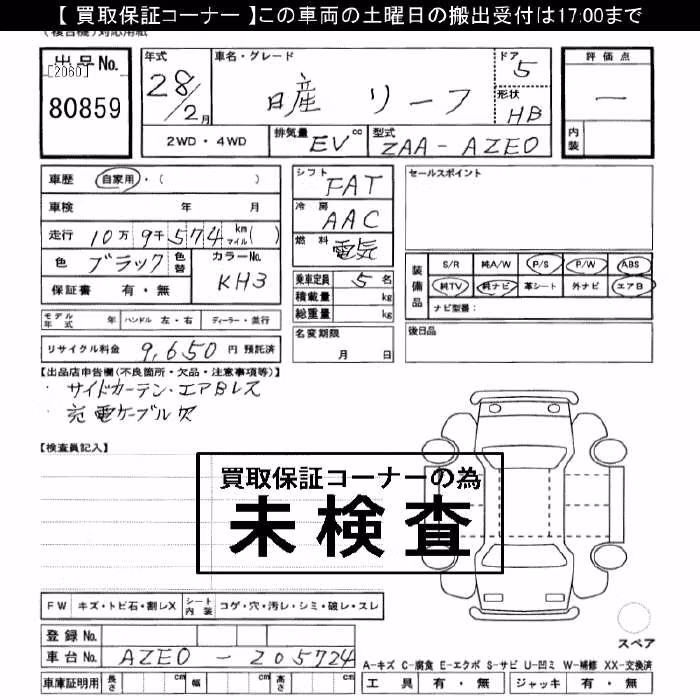 【 買取保証コーナー 】この車両の土曜日の搬出受付は17:00まで
(複合機)対応用紙
出品No.
[2060]
80859
年式
28/2月
車名・グレード
日産 リーフ
ドア
5
形状
HB
評価点
―
内装
2WD・4WD
排気量 EV cc
型式 ZAA-AZE0
車歴 自家用・( )
車検 年 月
走行 10万9千574 km マイル( )
色 ブラック 色替
カラーNo. KH3
保証書 有・無
シフト FAT
冷房 AAC
燃料 電気
乗車定員 5 名
積載量 kg
総重量 kg
セールスポイント
装備品
S/R 純A/W P/S P/W ABS
純TV 純ナビ 革シート 外ナビ エアB
ナビ型番:
モデル年式 年 ハンドル 左・右 ディーラー・並行
名変期限
月 日
後日品
リサイクル料金 9,650 円 預託済
【出品店申告欄(不良箇所・欠品・注意事項等)】
・サイドカーテン・エアBレス
・充電ケーブル欠
【検査員記入】
買取保証コーナーの為
未検査
FW キズ・トビ石・割レX シート内装 コゲ・穴・汚レ・シミ・破レ・スレ
スペア
登録No.
車台No. AZE0-205724
A-キズ C-腐食 E-エクボ S-サビ U-凹ミ W-補修 XX-交換済
車庫証明用 長さ cm 幅 cm 高さ cm
工具 有・無 ジャッキ 有・無